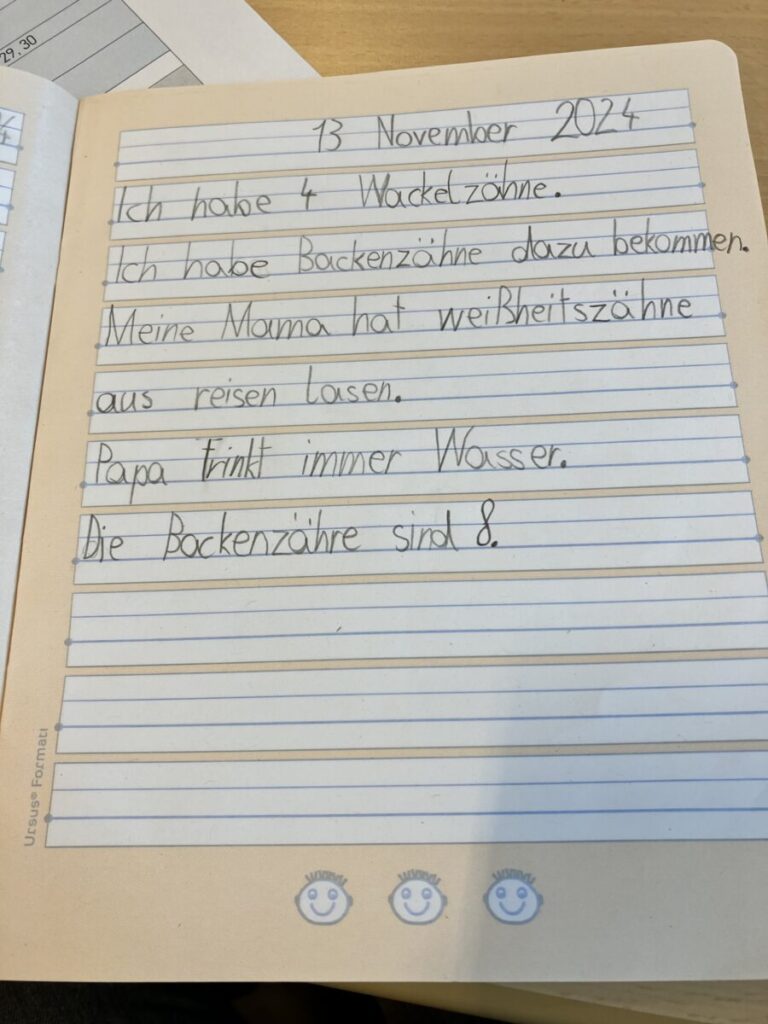 29.30
13 November 2024
Ich habe 4 Wackelzähne.
Ich habe Backenzähne dazu bekommen.
Meine Mama hat weißheitszähne
aus reisen lasen.
Papa trinkt immer Wasser.
Die Backenzähre sind 8.
Ursus® Formati